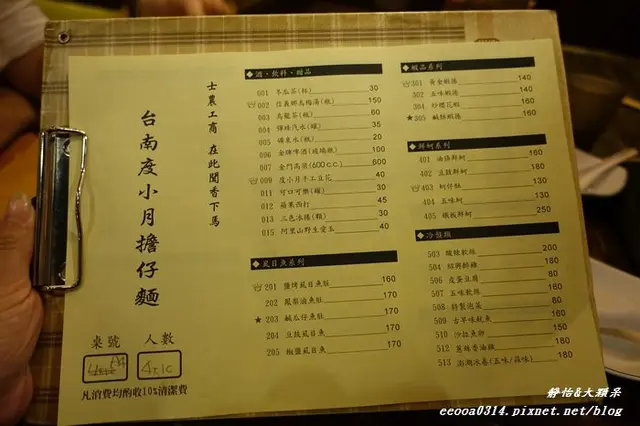 台南度小月擔仔麵
士農工商 在此聞香下馬
桌號 人數
凡消費均酌收10%清潔費
◆酒、飲料、甜品
001 冬瓜茶(杯) 30
002 信義鄉烏梅湯(瓶) 150
003 烏龍茶(瓶) 60
004 彈珠汽水(罐) 35
005 礦泉水(瓶) 20
006 金牌啤酒(玻璃瓶) 100
007 金門高粱(600c.c.) 600
009 度小月手工豆花 40
011 可口可樂(罐) 30
012 蘋果西打 45
013 三色冰捲(顆) 30
015 阿里山野生愛玉 40
◆虱目魚系列
201 鹽烤虱目魚肚 160
202 鳳梨滷魚肚 170
★ 203 鹹瓜仔魚肚 170
204 豆豉虱目魚 170
205 椒鹽虱目魚 170
◆蝦品系列
301 黃金蝦捲 140
302 五味蝦捲 140
304 炒櫻花蝦 160
★ 305 鹹酥蝦捲 160
◆鮮蚵系列
401 油條鮮蚵 130
402 豆豉鮮蚵 130
403 蚵仔酥 130
404 五味蚵 130
405 鐵板鮮蚵 250
◆冷盤類
503 酸辣軟絲 200
504 紹興醉雞 180
506 皮蛋豆腐 60
507 五味軟絲 180
508 特製泡菜 60
509 古早味魷魚 160
510 沙拉魚卵 150
512 蔥辣香油雞 180
513 澎湖冰卷(五味/蒜味) 180
靜怡&大顆呆
eeooa0314.pixnet.net/blog